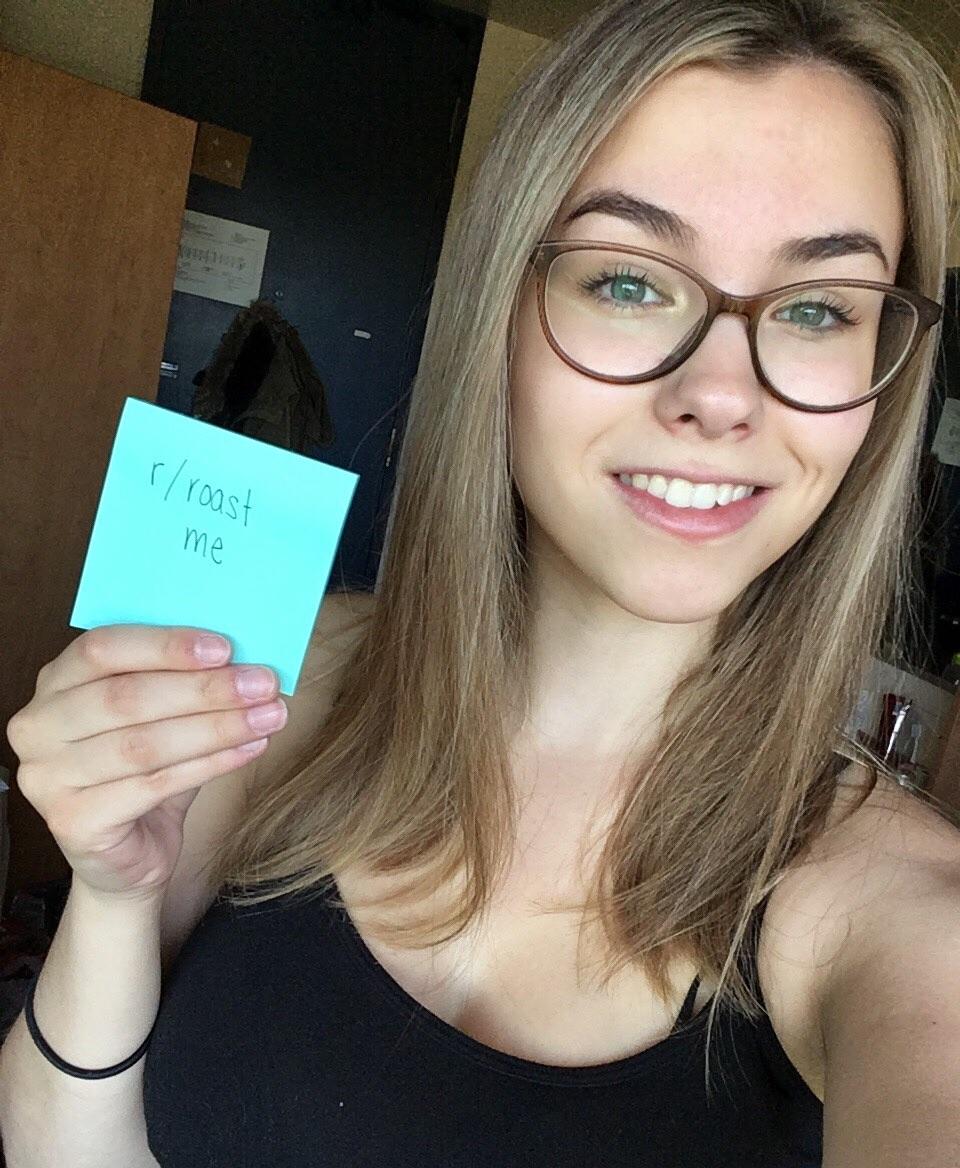 r/roast
me